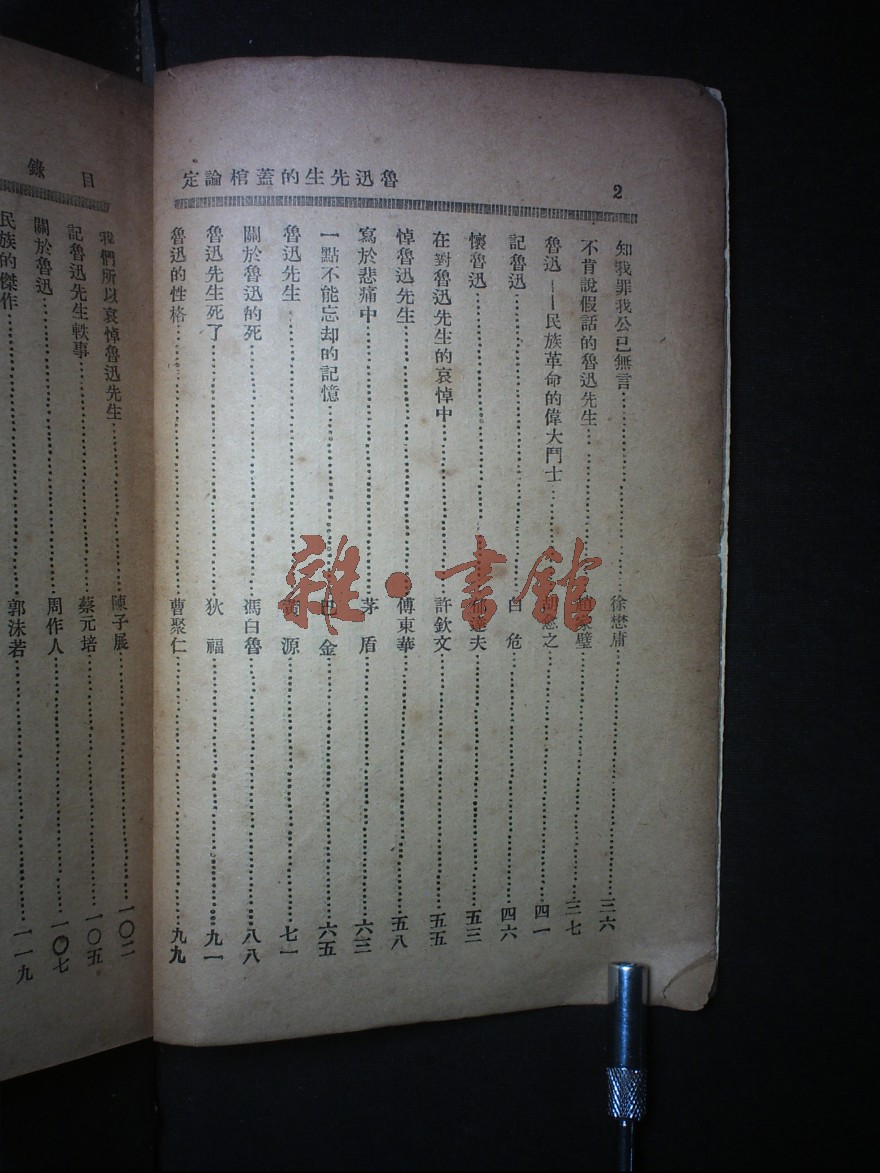 2
魯迅先生的蓋棺論定
知我罪我公已無言 徐懋庸 三六
不肯說假話的魯迅先生 家璧 三七
魯迅——民族革命的偉大鬥士 之 四一
記魯迅 白危 四六
懷魯迅 郁達夫 五三
在對魯迅先生的哀悼中 許欽文 五五
悼魯迅先生 傅東華 五八
寫於悲痛中 茅盾 六三
一點不能忘却的記憶 巴金 六五
魯迅先生 黃源 七一
關於魯迅的死 馮白魯 八八
魯迅先生死了 狄福 九一
魯迅的性格 曹聚仁 九九
目錄
我們所以哀悼魯迅先生 陳子展 一〇二
記魯迅先生軼事 蔡元培 一〇五
關於魯迅 周作人 一〇七
民族的傑作 郭沫若 一一九
雜·書館